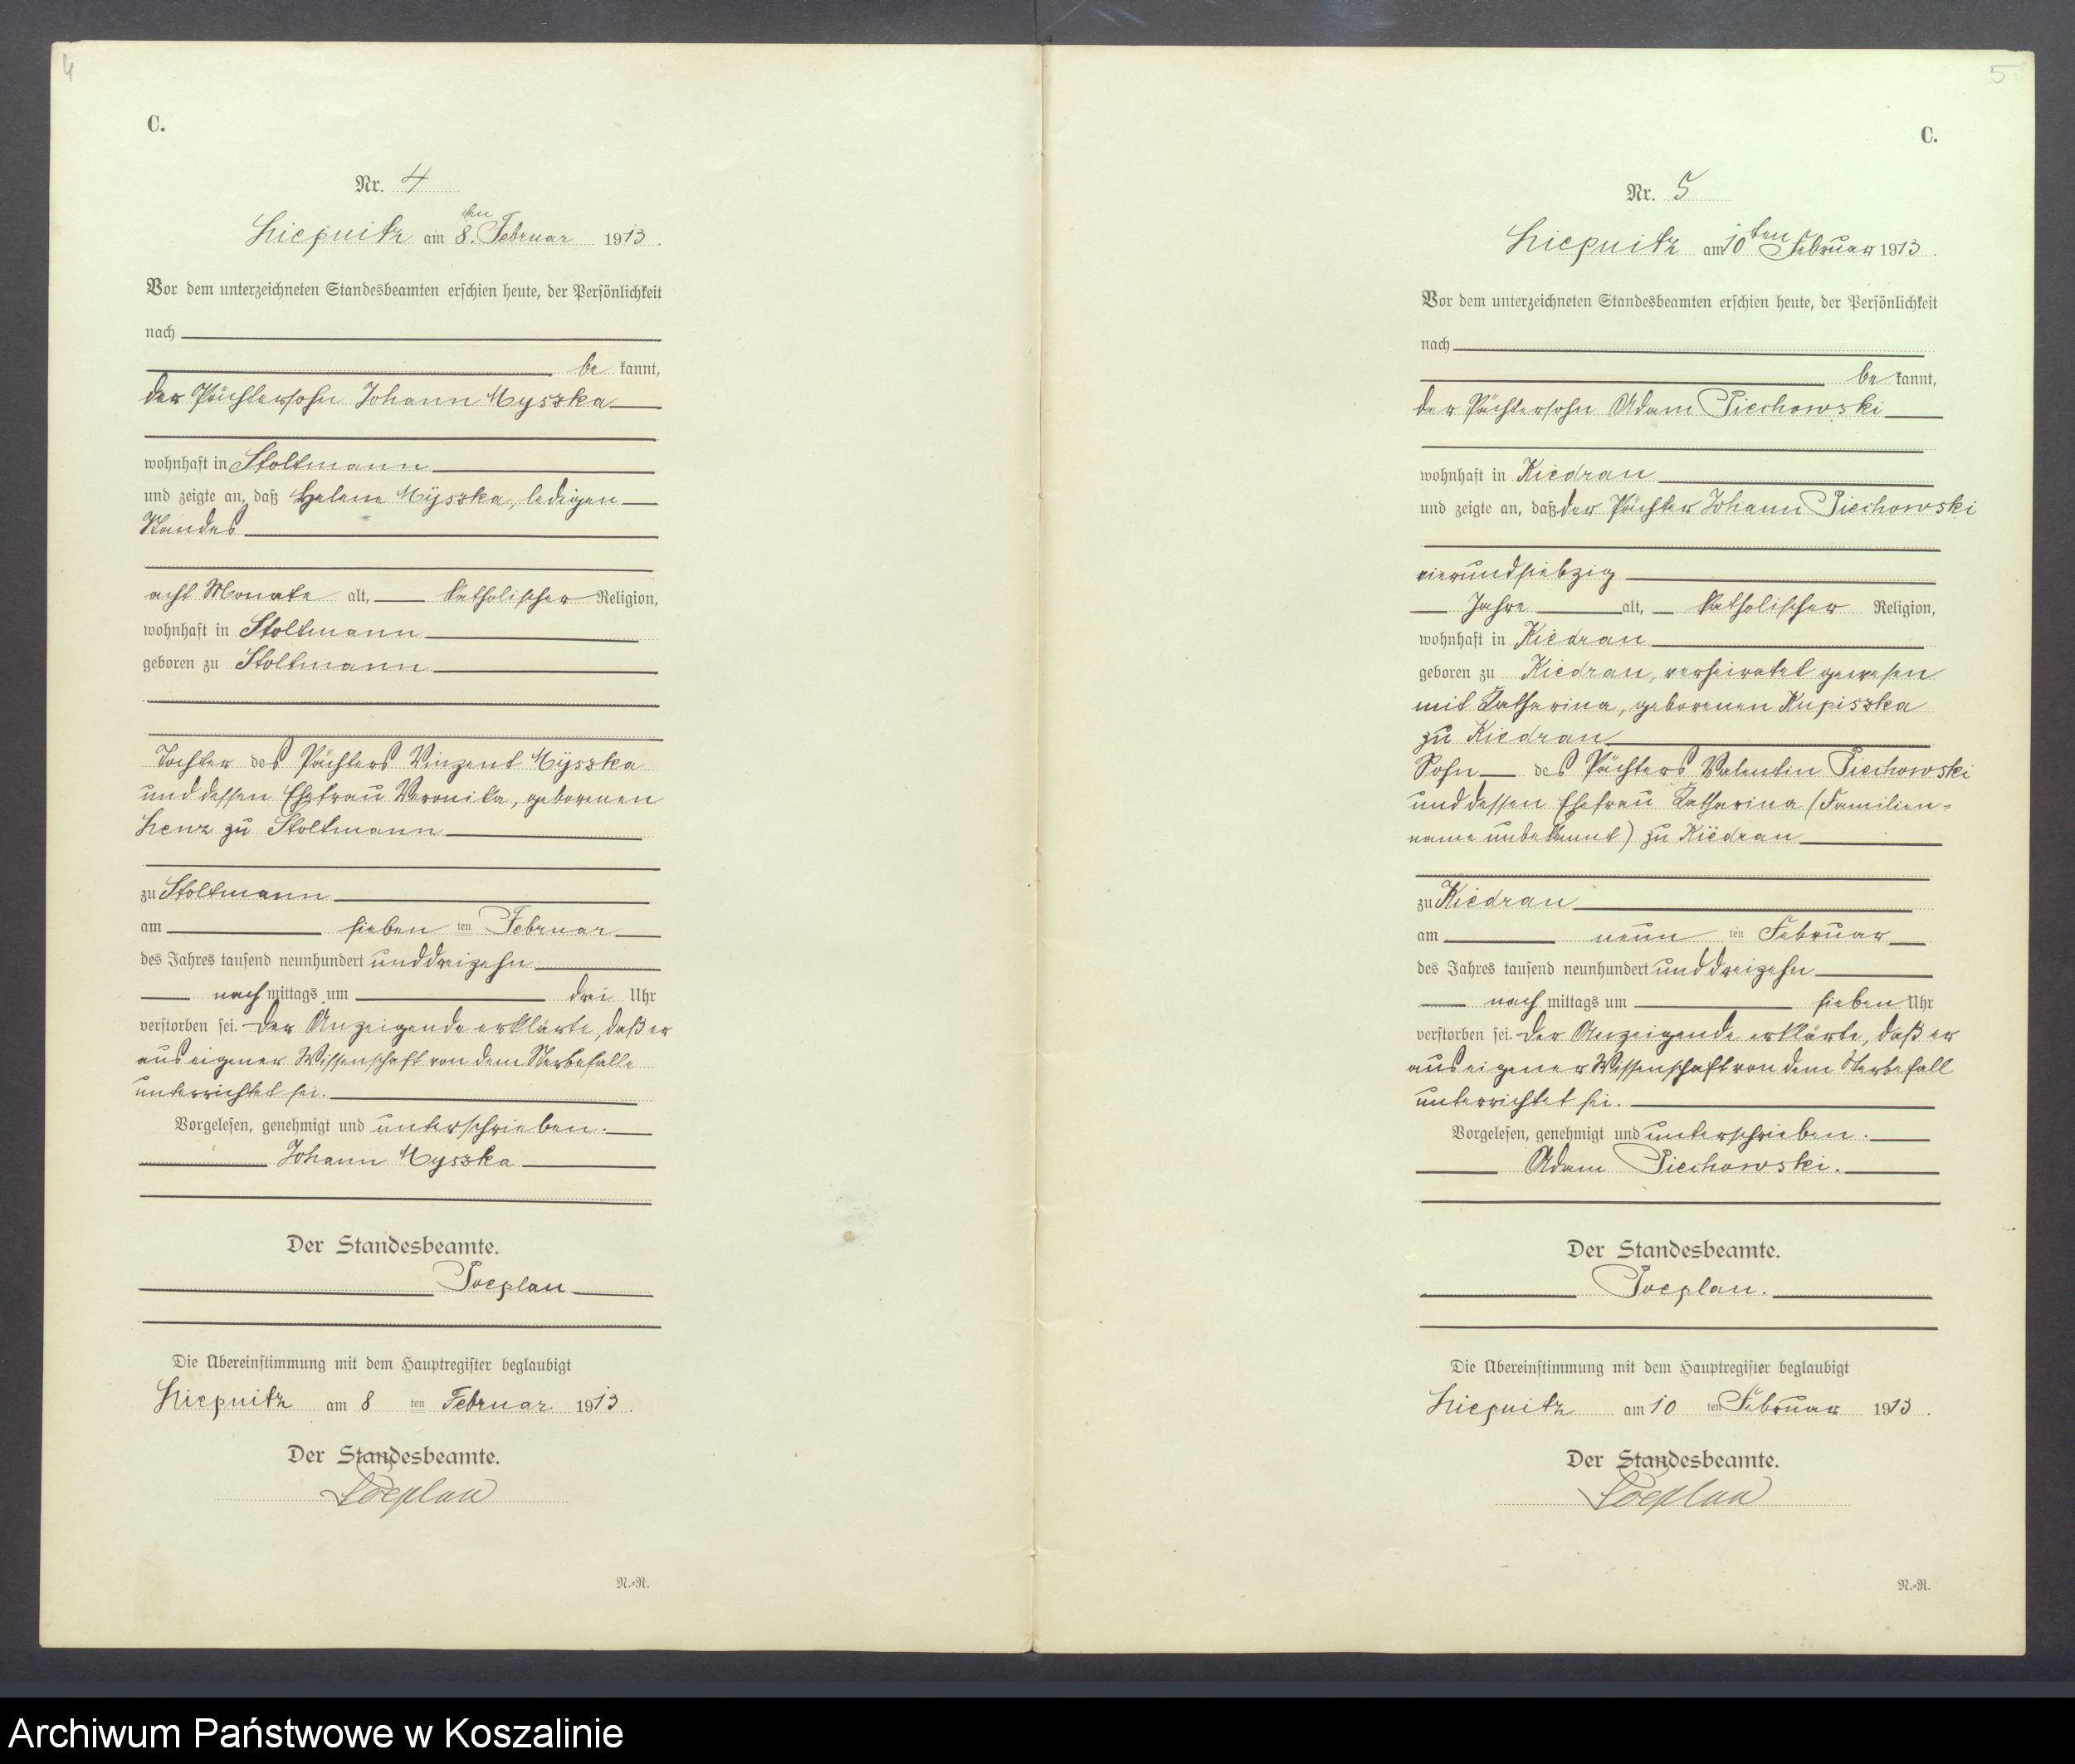 4
C.
Nr. 4
Liepnitz am 8. ten Februar 1913.
Vor dem unterzeichneten Standesbeamten erschien heute, der Persönlichkeit
nach
be kannt,
der Pächtersohn Johann Myszka
wohnhaft in Stoltmann
und zeigte an, daß Helene Mÿszka, ledigen
Standes
acht Monate alt, katholischer Religion,
wohnhaft in Stoltmann
geboren zu Stoltmann
Tochter des Pächters Vinzent Mÿszka
und dessen Ehefrau Veronika, geborenen
Lenz zu Stoltmann
zu Stoltmann
am sieben ten Februar
des Jahres tausend neunhundert und dreizehn
nach mittags um drei Uhr
verstorben sei. Der Anzeigende erklärte, daß er
aus eigener Wissenschaft von dem Sterbefalle
unterrichtet sei.
Vorgelesen, genehmigt und unterschrieben.
Johann Myszka
Der Standesbeamte.
Poeplau
Die Übereinstimmung mit dem Hauptregister beglaubigt
Liepnitz am 8 ten Februar 1913.
Der Standesbeamte.
Poeplau
N.-R.
5
C.
Nr. 5
Liepnitz am 10 ten Februar 1913.
Vor dem unterzeichneten Standesbeamten erschien heute, der Persönlichkeit
nach
be kannt,
der Pächtersohn Adam Piechowski
wohnhaft in Kiedrau
und zeigte an, daß der Pächter Johann Piechowski
vierundsiebzig
Jahre alt, katholischer Religion,
wohnhaft in Kiedrau
geboren zu Kiedrau, verheiratet gewesen
mit Katharina, geborenen Kupiszka
zu Kiedrau
Sohn des Pächters Valentin Piechowski
und dessen Ehefrau Katharina (Familien=
name unbekannt) zu Kiedrau
zu Kiedrau
am neun ten Februar
des Jahres tausend neunhundert und dreizehn
nach mittags um sieben Uhr
verstorben sei. Der Anzeigende erklärte, daß er
aus eigener Wissenschaft von dem Sterbefall
unterrichtet sei.
Vorgelesen, genehmigt und unterschrieben.
Adam Piechowski.
Der Standesbeamte.
Poeplau.
Die Übereinstimmung mit dem Hauptregister beglaubigt
Liepnitz am 10 ten Februar 1913.
Der Standesbeamte.
Poeplau
N.-R.
Archiwum Państwowe w Koszalinie